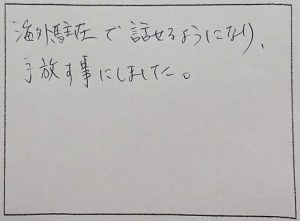 海外駐在で話せるようになり、
手放す事にしました。